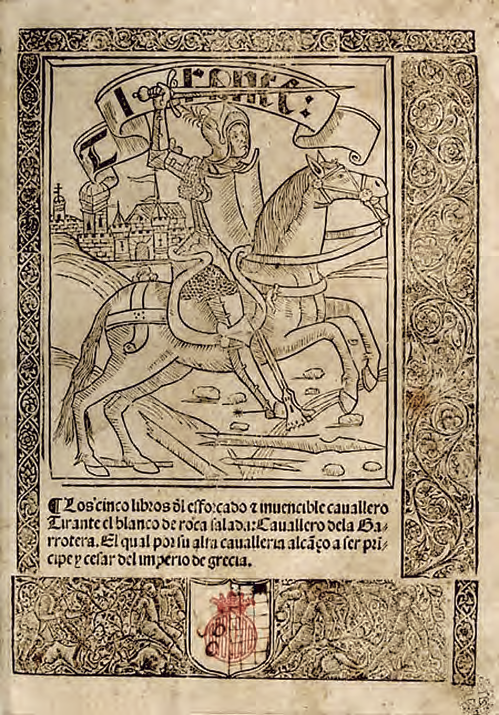 T I rante:
¶ Los cinco libros dl esforçado ⁊ inuencible cauallero
Tirante el blanco de roca salada: Cauallero dela Ga-
rrotera. El qual por su alta caualleria alcãço a ser prĩ-
cipe y cesar del imperio de grecia.